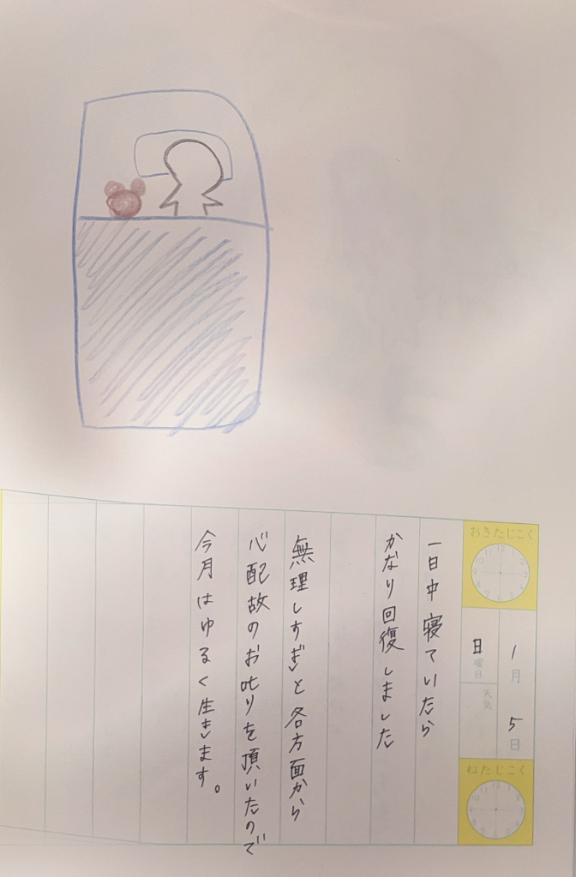 おきたじこく
1月5日
日曜日
天気
ねたじこく
一日中寝ていたら
かなり回復しました
無理しすぎと各方面から
心配故のお叱りを頂いたので
今月はゆるく生きます。